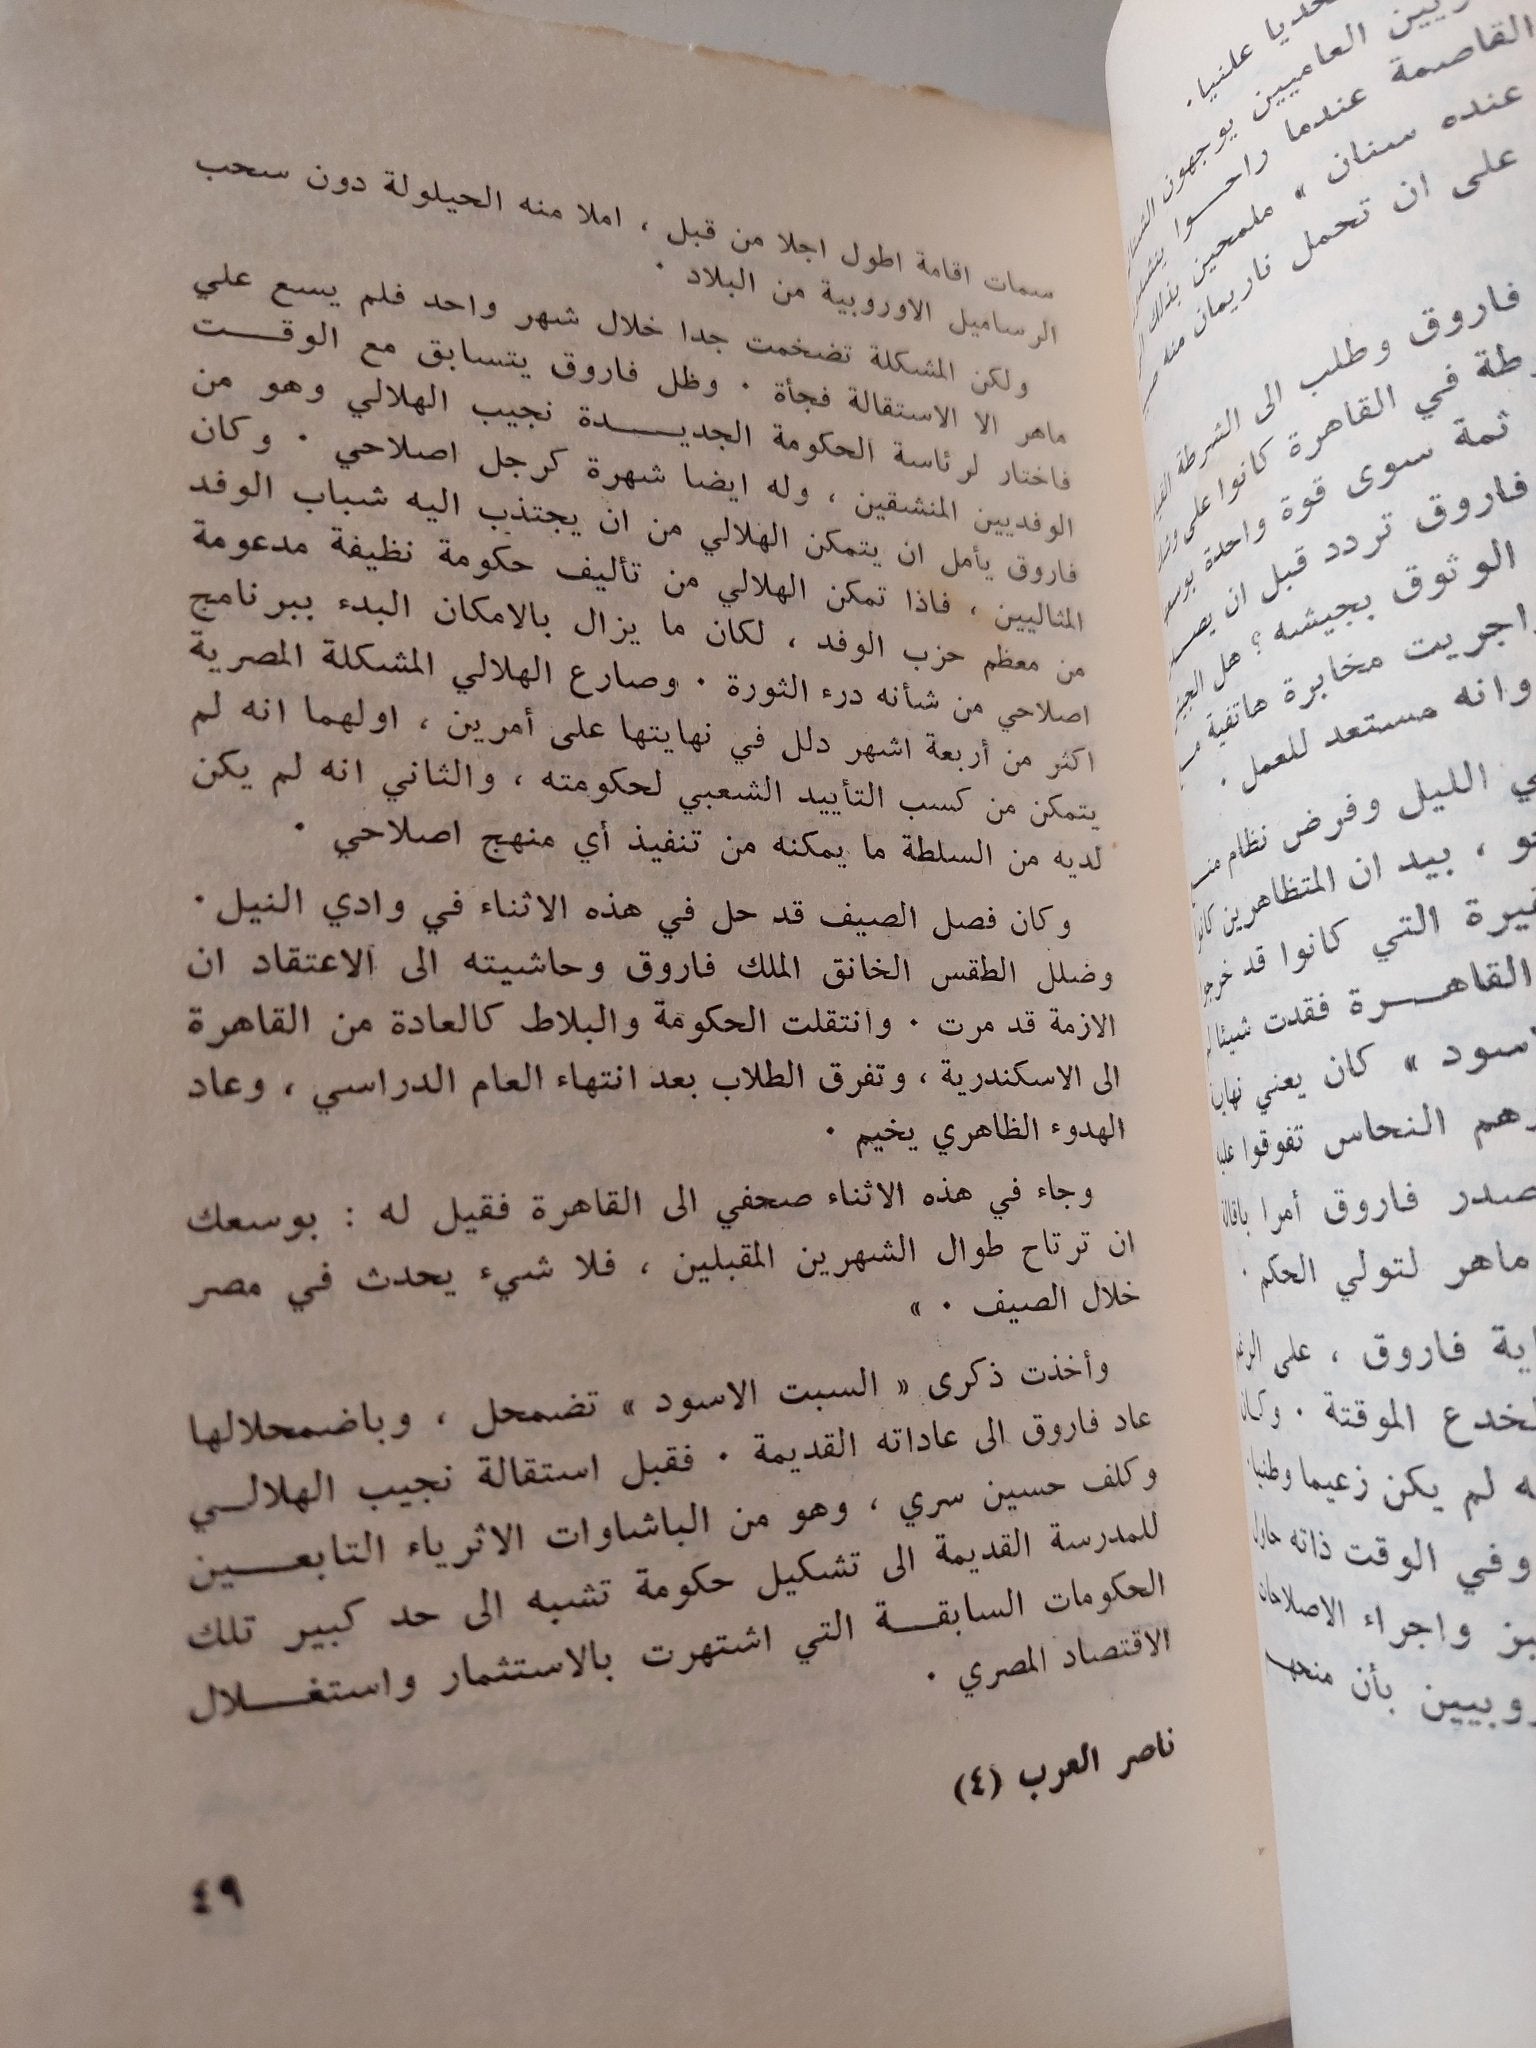 تحديا علنيا .
العاميين يوجهون
القاصمة عندما راحـــوا
عنده سنان » ملمحين بذلك
على ان تحمل ناريمان منه
فاروق وطلب الى الشرطة
في القاهرة كانوا على
ثمة سوى قوة واحدة
فاروق تردد قبل ان
الوثوق بجيشه ؟ هل
اجريت مخابرة هاتفية
وانه مستعد للعمل .
الليل وفرض نظام
، بيد ان المتظاهرين
التي كانوا قد
القاهـــرة فقدت شيئا
« كان يعني
النحاس تفوقوا
فاروق أمرا
ماهر لتولي الحكم .
فاروق ، على
الموقتة . وكان
لم يكن زعيما وطنيا
وفي الوقت ذاته حاول
واجراء الاصلاحات
بأن منحهم
سمات اقامة اطول اجلا من قبل ، املا منه الحيلولة دون سحب
الرساميل الاوروبية من البلاد .
ولكن المشكلة تضخمت جدا خلال شهر واحد فلم يسع علي
ماهر الا الاستقالة فجأة . وظل فاروق يتسابق مع الوقـــت
فاختار لرئاسة الحكومة الجديـــدة نجيب الهلالي وهو من
الوفديين المنشقين ، وله ايضا شهرة كرجل اصلاحي . وكان
فاروق يأمل ان يتمكن الهلالي من ان يجتذب اليه شباب الوفد
المثاليين ، فاذا تمكن الهلالي من تأليف حكومة نظيفة مدعومة
من معظم حزب الوفد ، لكان ما يزال بالامكان البدء ببرنامج
اصلاحي من شأنه درء الثورة . وصارع الهلالي المشكلة المصرية
اكثر من أربعة اشهر دلل في نهايتها على أمرين ، اولهما انه لم
يتمكن من كسب التأييد الشعبي لحكومته ، والثاني انه لم يكن
لديه من السلطة ما يمكنه من تنفيذ أي منهج اصلاحي .
وكان فصل الصيف قد حل في هذه الاثناء في وادي النيل .
وضلل الطقس الخانق الملك فاروق وحاشيته الى الاعتقاد ان
الازمة قد مرت . وانتقلت الحكومة والبلاط كالعادة من القاهرة
الى الاسكندرية ، وتفرق الطلاب بعد انتهاء العام الدراسي ، وعاد
الهدوء الظاهري يخيم .
وجاء في هذه الاثناء صحفي الى القاهرة فقيل له : بوسعك
ان ترتاح طوال الشهرين المقبلين ، فلا شيء يحدث في مصر
خلال الصيف . »
وأخذت ذكرى « السبت الاسود » تضمحل ، وباضمحلالها
عاد فاروق الى عاداته القديمة . فقبل استقالة نجيب الهلالـــي
وكلف حسين سري ، وهو من الباشاوات الاثرياء التابعـــين
للمدرسة القديمة الى تشكيل حكومة تشبه الى حد كبير تلك
الحكومات السابقـــة التي اشتهرت بالاستثمار واستغـــلال
الاقتصاد المصري .
ناصر العرب (٤)
٤٩